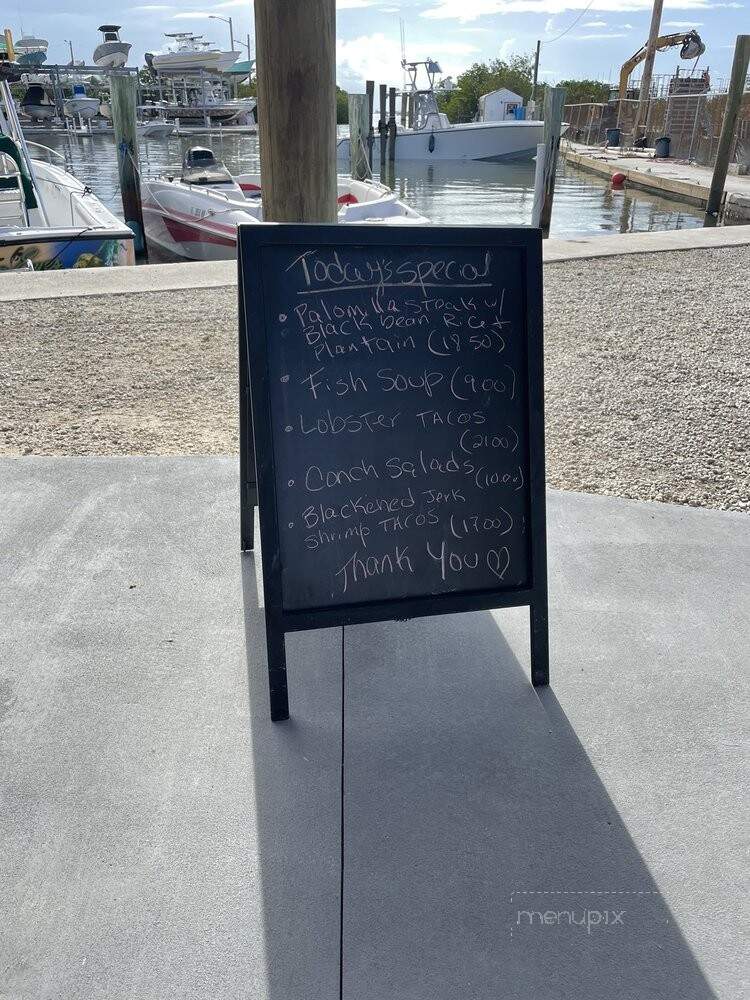 Today's special
• Palomilla steak w/
Black bean Rice +
plantain (18.50)
• Fish Soup (9.00)
• LOBSTER TACOS
(21.00)
• Conch Salads (10.00)
• Blackened Jerk
shrimp TACOS (17.00)
Thank You ♡
menupix